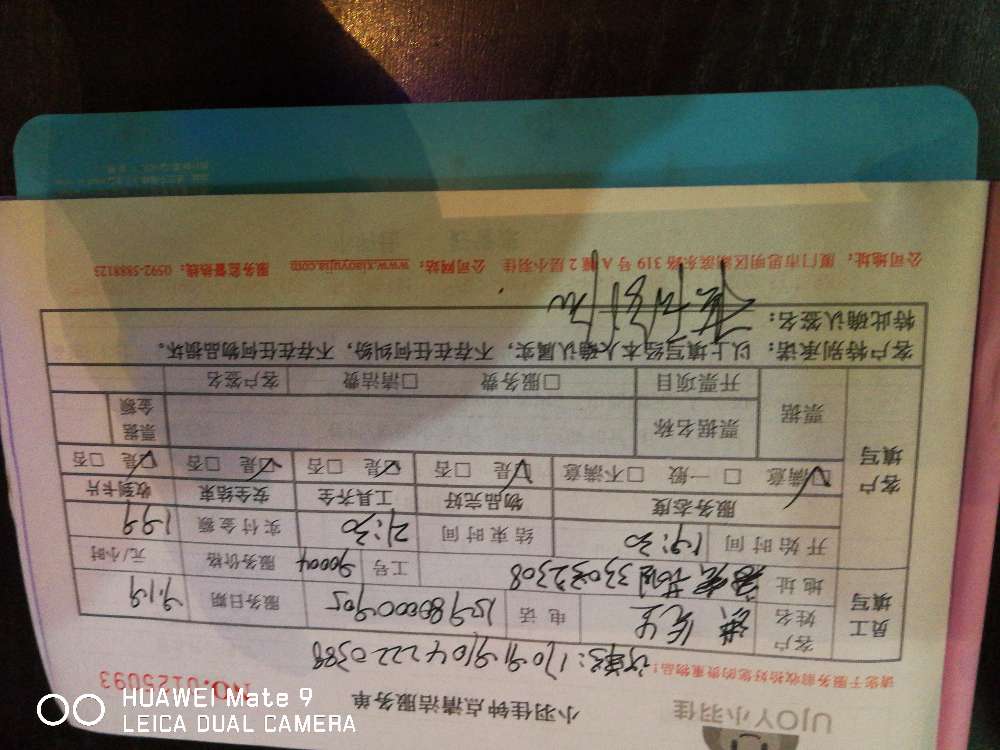 UJOY小羽佳
小羽佳钟点清洁服务单
NO.0125093
请您于服务前收拾好您的贵重物品!
170919104222 0388
员工填写
客户姓名 洪先生 电话 15980000905 服务日期 9.19
地址 330 2308 工号 90004 服务价格 元/小时
客户填写
开始时间 19:30 结束时间 21:30 实付金额 199
服务态度 物品完好 工具齐全 安全结束 收到卡片
☑满意 □一般 □不满意 ☑是 □否 ☑是 □否 ☑是 □否 ☑是 □否
票据 票据名称 票据金额
开票项目 □服务费 □清洁费 客户签名
客户特别承诺:以上填写经本人确认属实,不存在任何纠纷,不存在任何物品损坏。
特此确认签名:
公司地址:厦门市思明区湖滨东路 319 号 A 幢 2 层小羽佳 公司网站:www.xiaoyujia.com 服务监督热线:0592-5888123
HUAWEI Mate 9
LEICA DUAL CAMERA